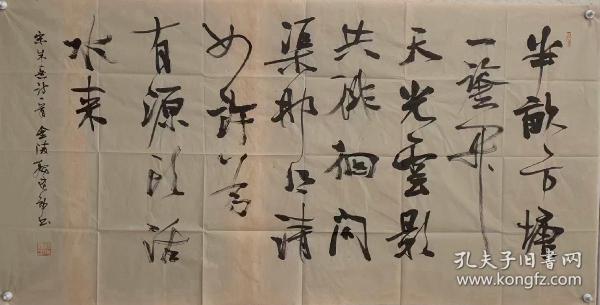 半畝方塘
一鑑開
天光雲影
共徘徊問
渠那得清
如許為
有源頭活
水来
宋朱熹詩一首 金陵
孔夫子旧书网
www.kongfz.com